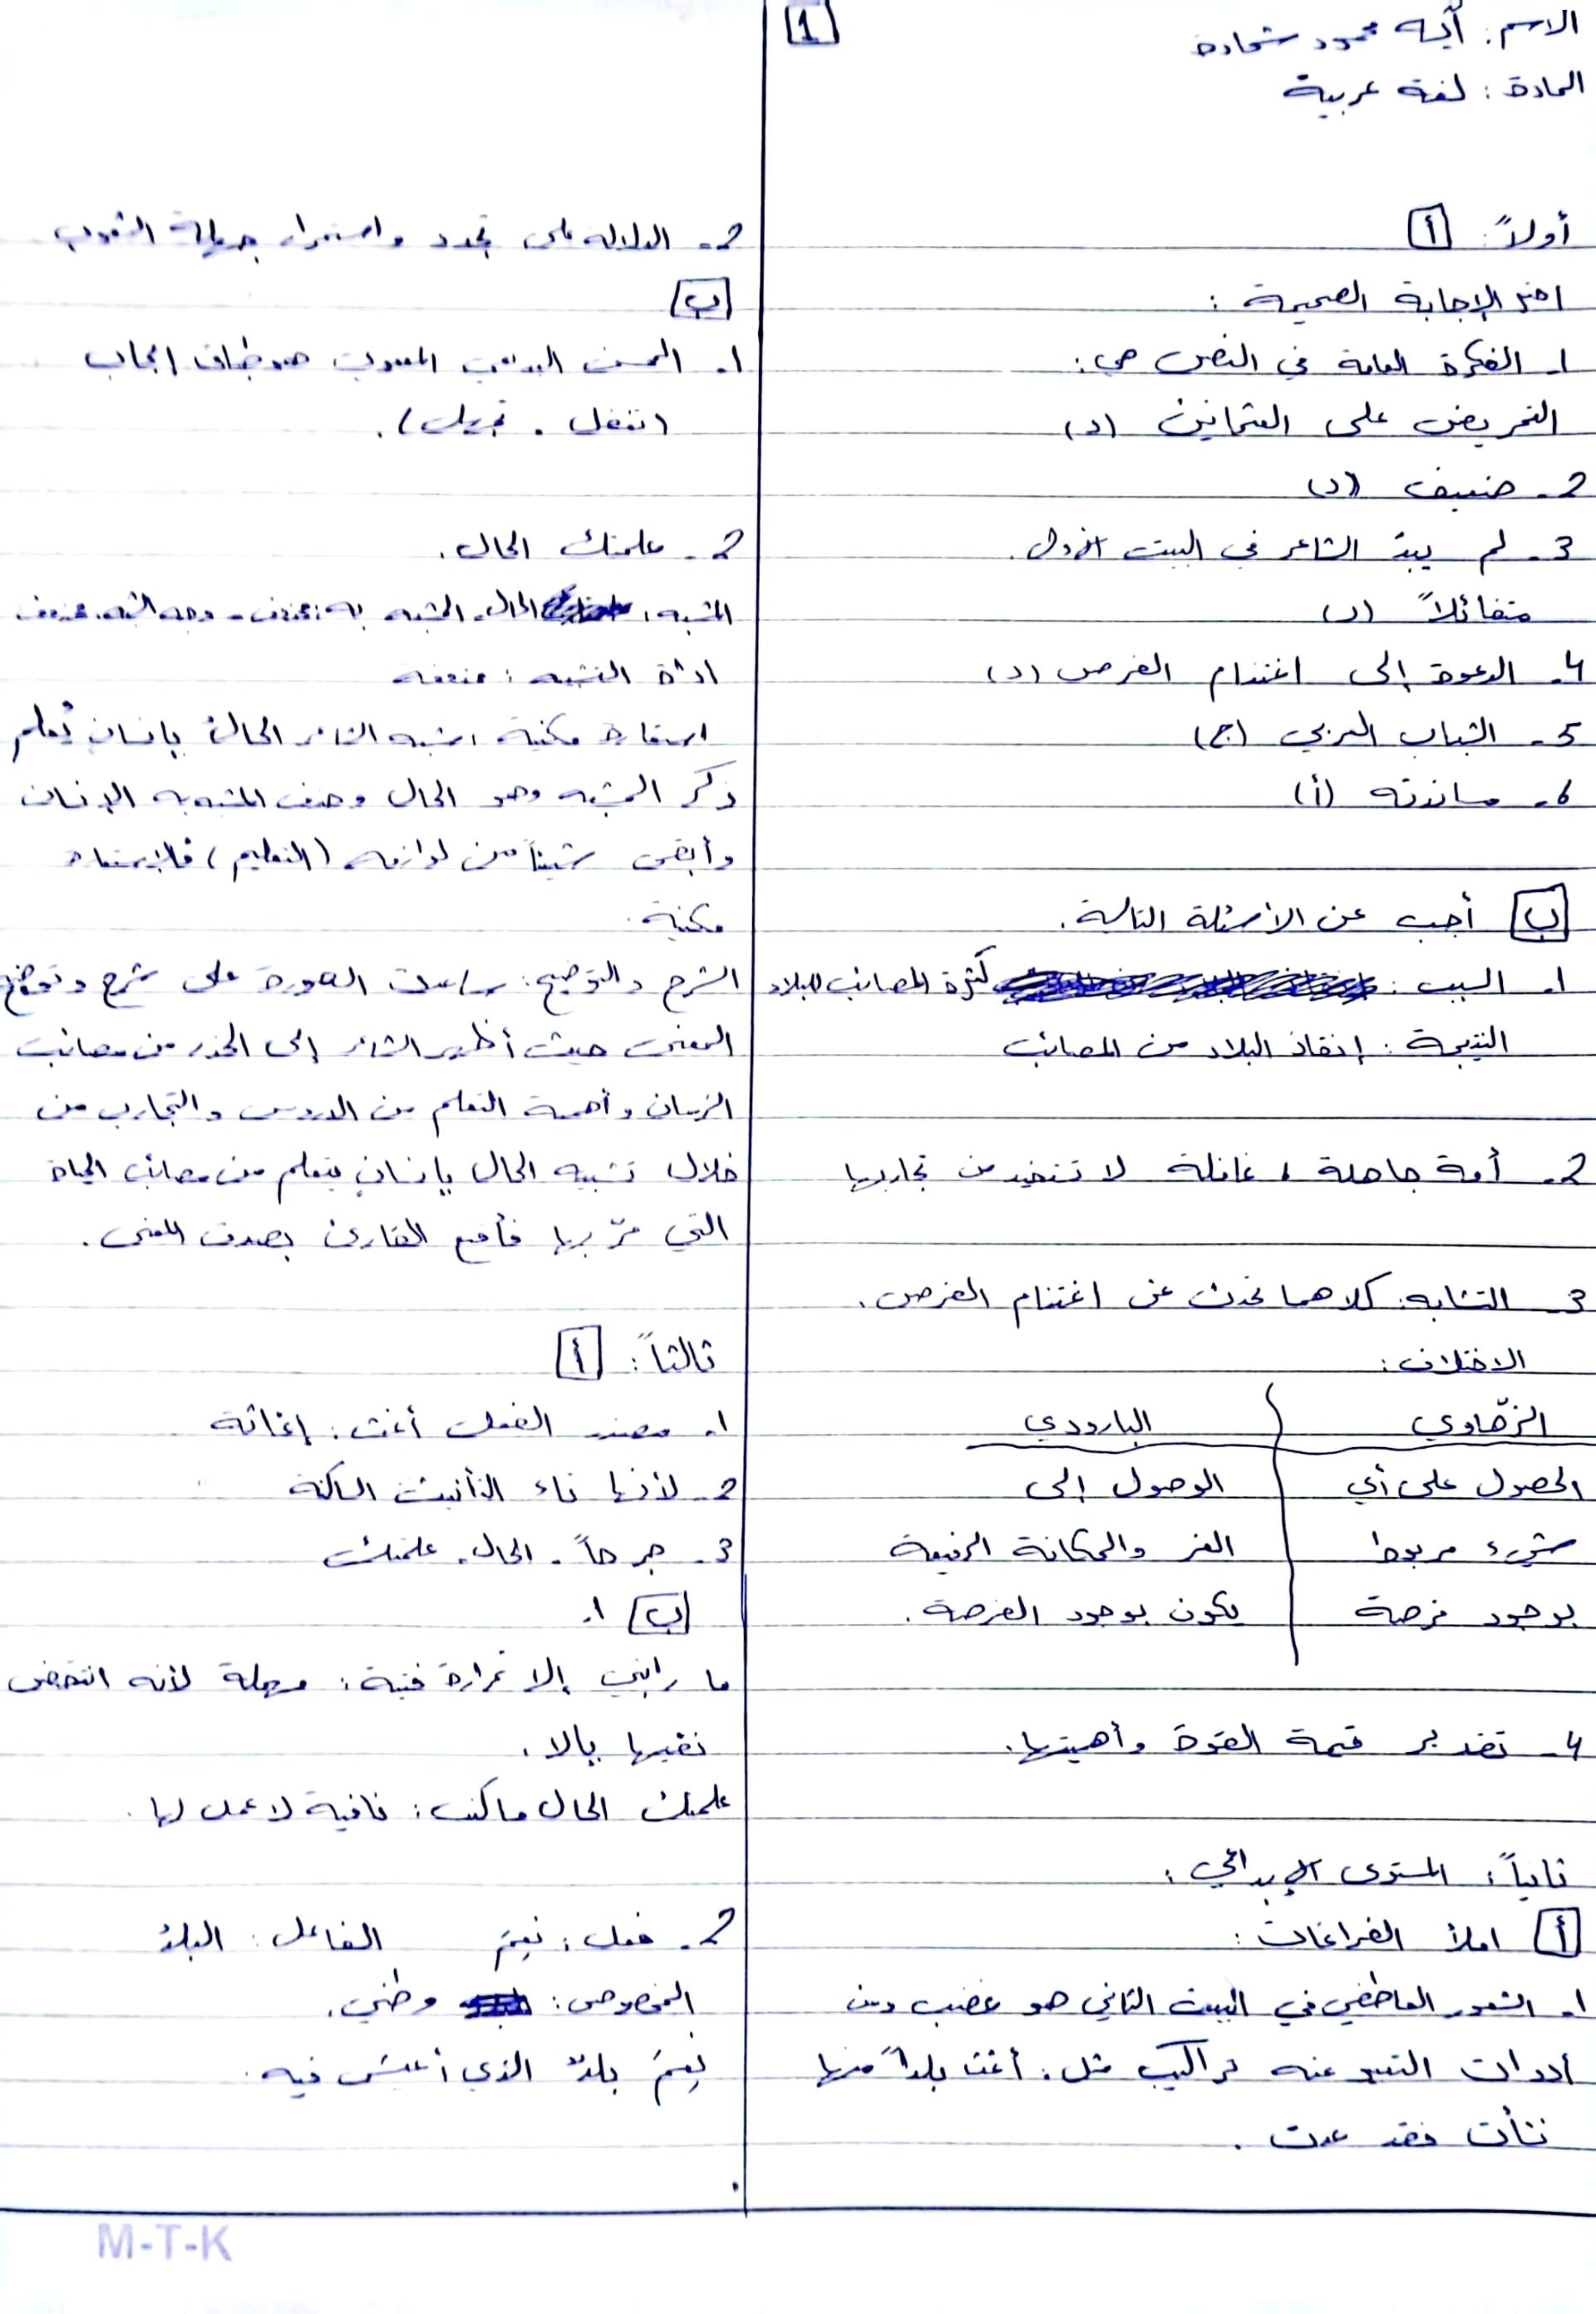 1
الاسم: آية محمود شحادة
المادة: لغة عربية
أولاً: أ
اختر الإجابة الصحيحة:
1. الفكرة العامة في النص هي:
التحريض على العثمانين (د)
2. ضعيف (د)
3. لم يبدُ الشاعر في البيت الأول.
متفائلاً (د)
4. الدعوة إلى اغتنام الفرص (د)
5. الشباب العربي (ج)
6. مساندته (أ)
ب أجب عن الأسئلة التالية.
1. السبب: كثرة المصائب للبلاد
النتيجة: إنقاذ البلاد من المصائب
2. أمة جاهلة، غافلة لا تستفيد من تجاربها
3. التشابه: كلاهما تحدث عن اغتنام الفرص.
الاختلاف:
الزهاوي البارودي
الحصول على أي الوصول إلى
شيء مربوط العز والمكانة الرفيعة
بوجود فرصة يكون بوجود الفرصة.
4. تقدير قيمة القوة وأهميتها.
ثانياً: المستوى الإبداعي:
أ املأ الفراغات:
1. الشعور العاطفي في البيت الثاني هو غضب ومن
أدوات التعبير عنه تراكيب مثل: أغث بلداً منها
نشأت فقد عدت.
2. الدلالة على تجدد واستمرار جهالة الشعوب
ب
1. المحسن البديعي المعنوي هو طباق إيجاب
(تغفل. تجهل).
2. علمتك الحال.
المشبه: الحال. المشبه به: محذوف. وجه الشبه. محذوف
اداة التشبيه: محذوفة
استعارة مكنية، شبه الشاعر الحال بإنسان يُعلم
ذكر المشبه وهو الحال وحذف المشبه به الإنسان
وأبقى شيئاً من لوازمه (التعليم) فالاستعارة
مكنية.
الشرح والتوضيح: ساعدت الصورة على شرح وتوضيح
المعنى حيث أظهر الشاعر إلى الحذر من مصائب
الزمان وأهمية التعلم من الدروس والتجارب من
خلال تشبيه الحال بإنسان يتعلم من مصائب الحياة
التي مرّ بها فأقنع القارئ بصدق المعنى.
ثالثاً: أ
1. مصدر الفعل أغث: إغاثة
2. لأنها تاء التأنيث الساكنة
3. جرحاً. الحال. علمتك
ب 1.
ما رابني إلا غرارة فتية: مهملة لأنه انتقض
نفيها بإلا.
علمتك الحال ما كنت: نافية لا عمل لها.
2. فعل: نِعمَ الفاعل: البلدُ
المخصوص: وطني.
نِعمَ بلدٌ الذي أعيش فيه.
M-T-K